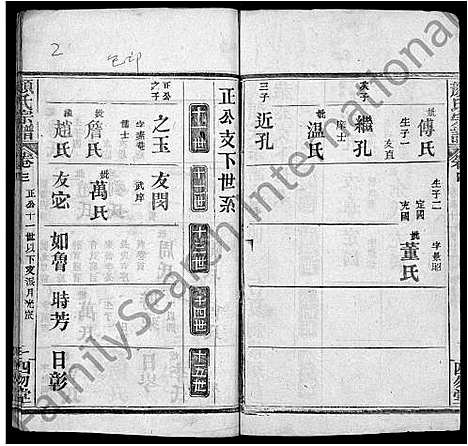 2
傅氏
生子一
友直
次子
繼孔
庠士
妣
温氏
三子
近孔
生子二
定國
充國
字景昭
妣
董氏
正公支下世系
十一世
十二世
十三世
十四世
十五世
正公
之子
之玉
儒士
妣
詹氏
繼
趙氏
友閔
武庠
妣
萬氏
友宓
如魯
時芳
日彰
顏氏宗譜
卷三
正公十一世以下支派月光嵗
四勿堂
FamilySearch International